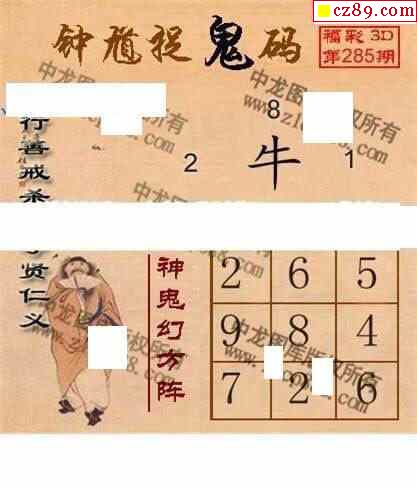 cz89.com
钟馗捉鬼码
福彩 3D
第285期
8
2 牛 1
行善戒杀
贤仁义
神鬼幻方阵
2 6 5
9 8 4
7 2 6
中龙图库版权所有